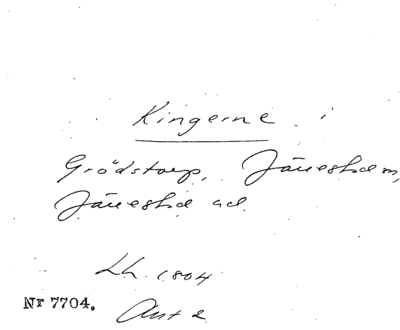 Kingerne i
Grödstorp, Jänesholm,
Jäneshol ad.
Lh. 1804
Nr 7704.
Ant 2